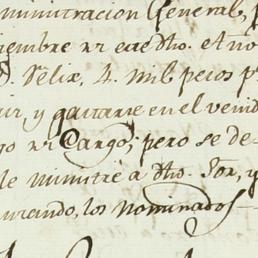 ministracion General, p
iembre nr eCedho. et no
D. Felix, 4. mil pecos p
ir, y gastarse en el venid
go nr Cargo, pero se de-
le ministré a dho. Sor, y
urando, los nominados